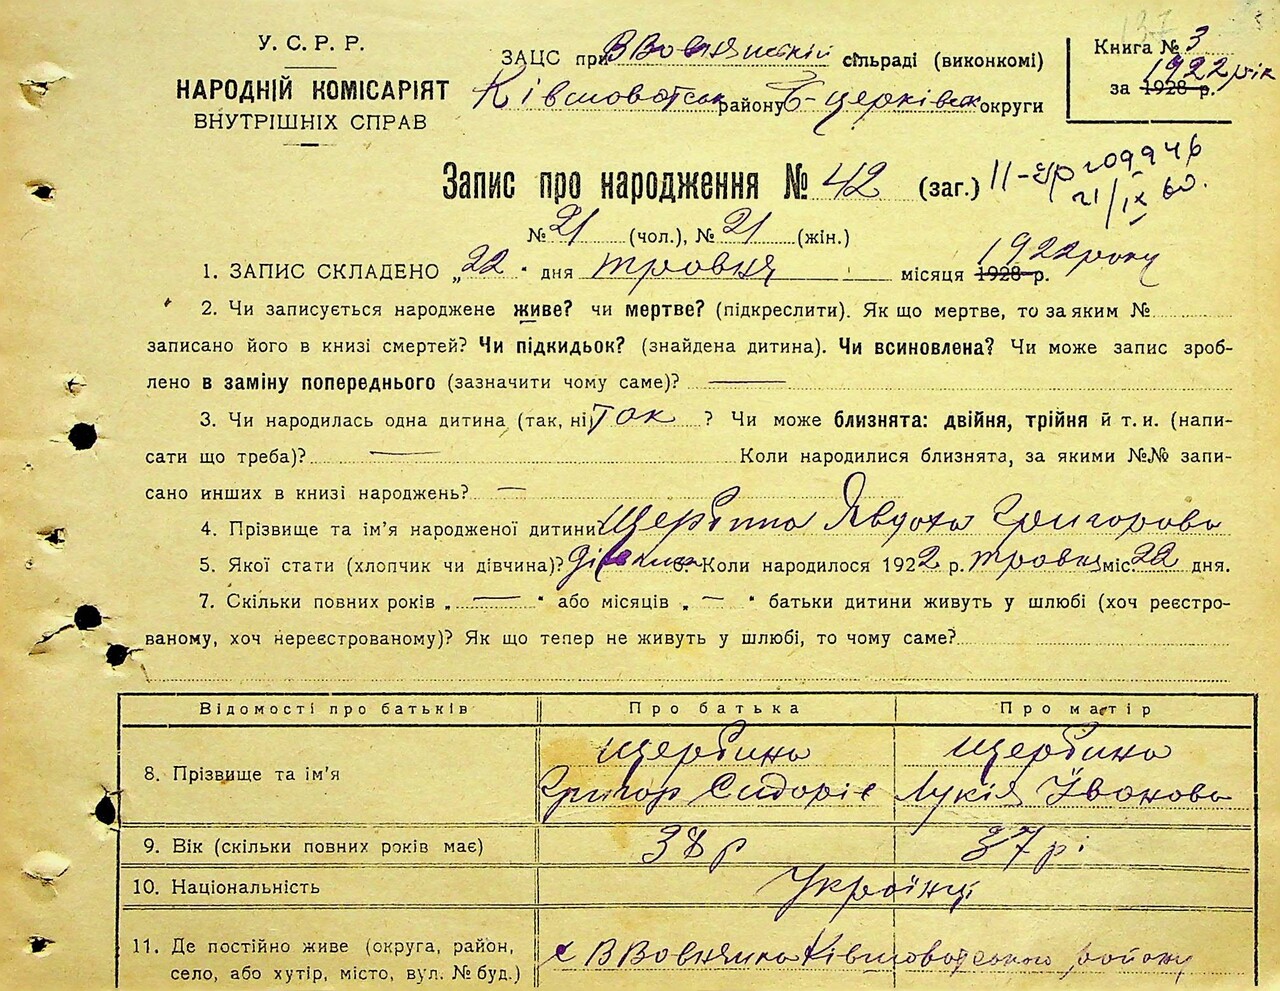 У. С. Р. Р.
НАРОДНІЙ КОМІСАРІЯТ
ВНУТРІШНІХ СПРАВ
ЗАЦС при В Вовнянській сільраді (виконкомі)
Ківшоватськ району Б-церківськ округи
Книга № 3
1922 рік
за 1928 р.
Запис про народження № 42 (заг.)
21/IX 60.
№ 21 (чол.), № 21 (жін.)
1922 року
1. ЗАПИС СКЛАДЕНО „22" дня травня місяця 1928 р.
2. Чи записується народжене живе? чи мертве? (підкреслити). Як що мертве, то за яким №
записано його в книзі смертей? Чи підкидьок? (знайдена дитина). Чи всиновлена? Чи може запис зроб-
лено в заміну попереднього (зазначити чому саме)? —
3. Чи народилась одна дитина (так, ні) так ? Чи може близнята: двійня, трійня й т. и. (напи-
сати що треба)? — Коли народилися близнята, за якими №№ запи-
сано инших в книзі народжень? —
4. Прізвище та ім'я народженої дитини? Щербина Явдоха Григорова
5. Якої стати (хлопчик чи дівчина)? Коли народилося 1922 р. травня міс 22 дня.
7. Скільки повних років „ — " або місяців „ — " батьки дитини живуть у шлюбі (хоч реєстро-
ваному, хоч нереєстрованому)? Як що тепер не живуть у шлюбі, то чому саме?
Відомості про батьків Про батька Про матір
8. Прізвище та ім'я Щербина Григор Сидорів Щербина Лукія Іванова
9. Вік (скільки повних років має) 38 р 37 рі
10. Національність Українці
11. Де постійно живе (округа, район,
село, або хутір, місто, вул. № буд.) с В Вовнянка Ківшоватського району